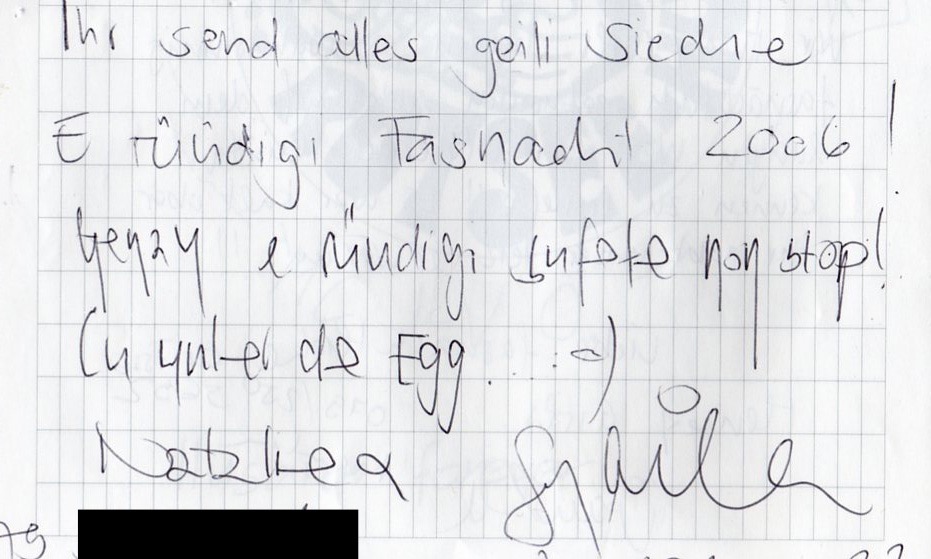 Ihr send alles geili Sieche
E rüüdigi Fasnacht 2006!
e rüüdigi sufete non stop!
Cu unter de Egg.....=)